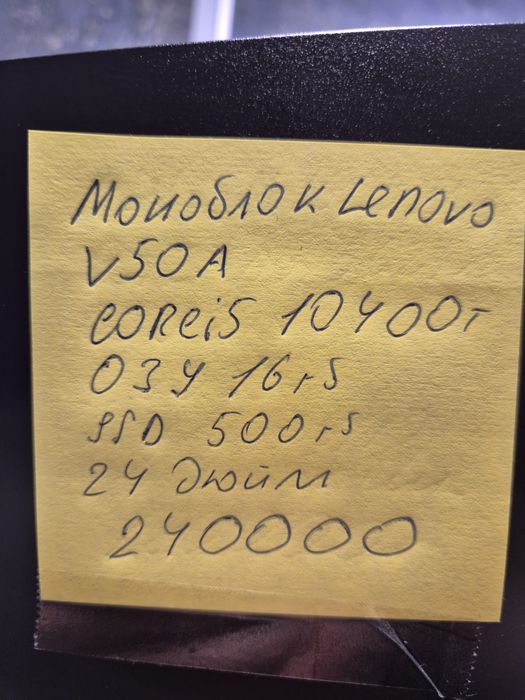 Моноблок Lenovo
V50A
COREi5 10400т
ОЗУ 16гб
SSD 500гб
24 дюйм
240000